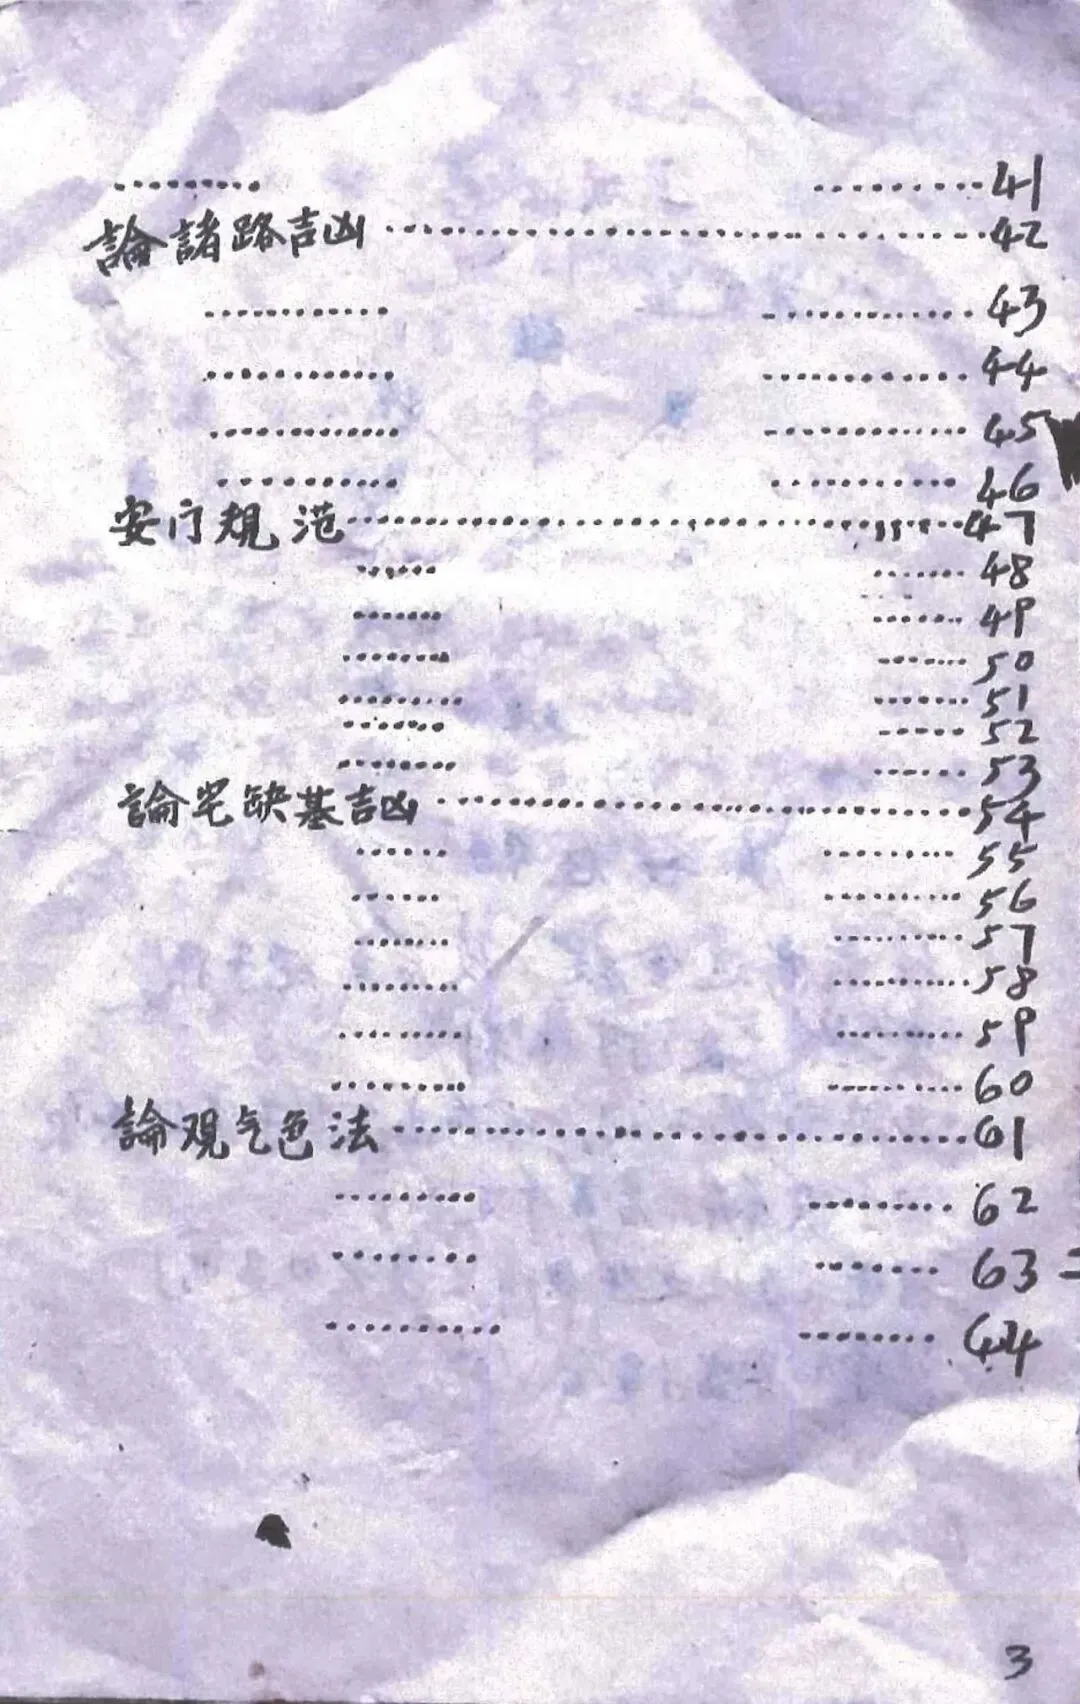 ………41
論諸路吉凶………42
………43
………44
………45
………46
安门規范………47
………48
………49
………50
………51
………52
………53
論宅缺基吉凶………54
………55
………56
………57
………58
………59
………60
論观气色法………61
………62
………63
………64
3